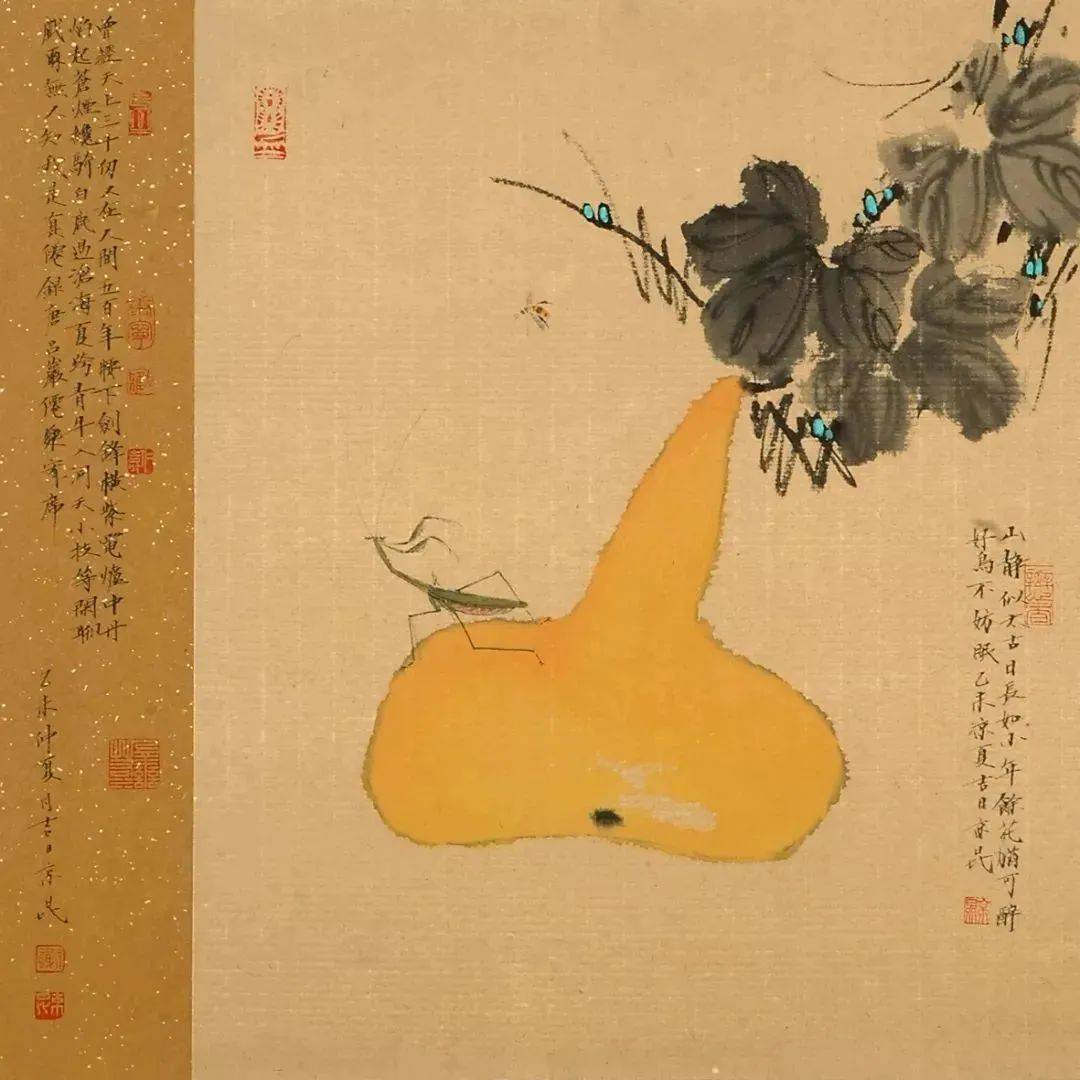 山静似太古日長如小年餘花猶可醉
好鳥不妨眠乙未涼夏吉日
曾經天上三千劫又在人間五百年腰下劍鋒橫紫電爐中丹
焰起蒼煙纔騎白鹿過滄海夏跨青牛入洞天小技等閑聊
戲爾無人知我是真僊錄唐呂巖僊
乙未仲夏月吉日